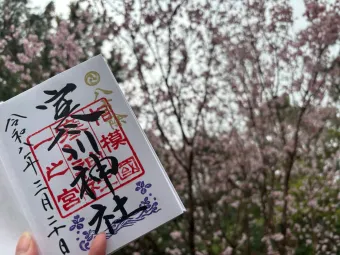 八方除
相模國
寒川神社
一之宮
令和六年三月二十日